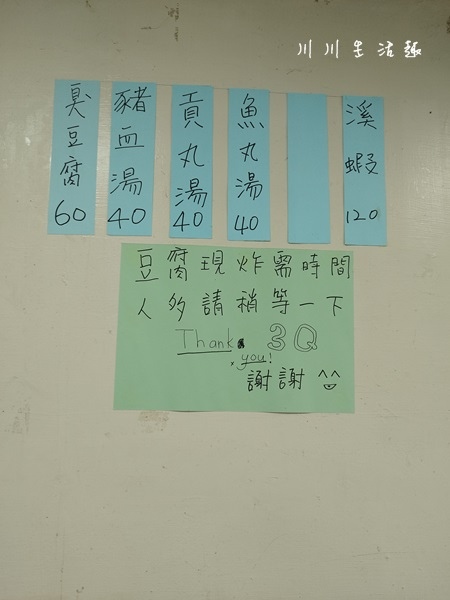 川川生活趣
臭豆腐60
豬血湯40
貢丸湯40
魚丸湯40
溪蝦120
豆腐現炸需時間
人多請稍等一下
Thank 3Q
you!
謝謝 ^^